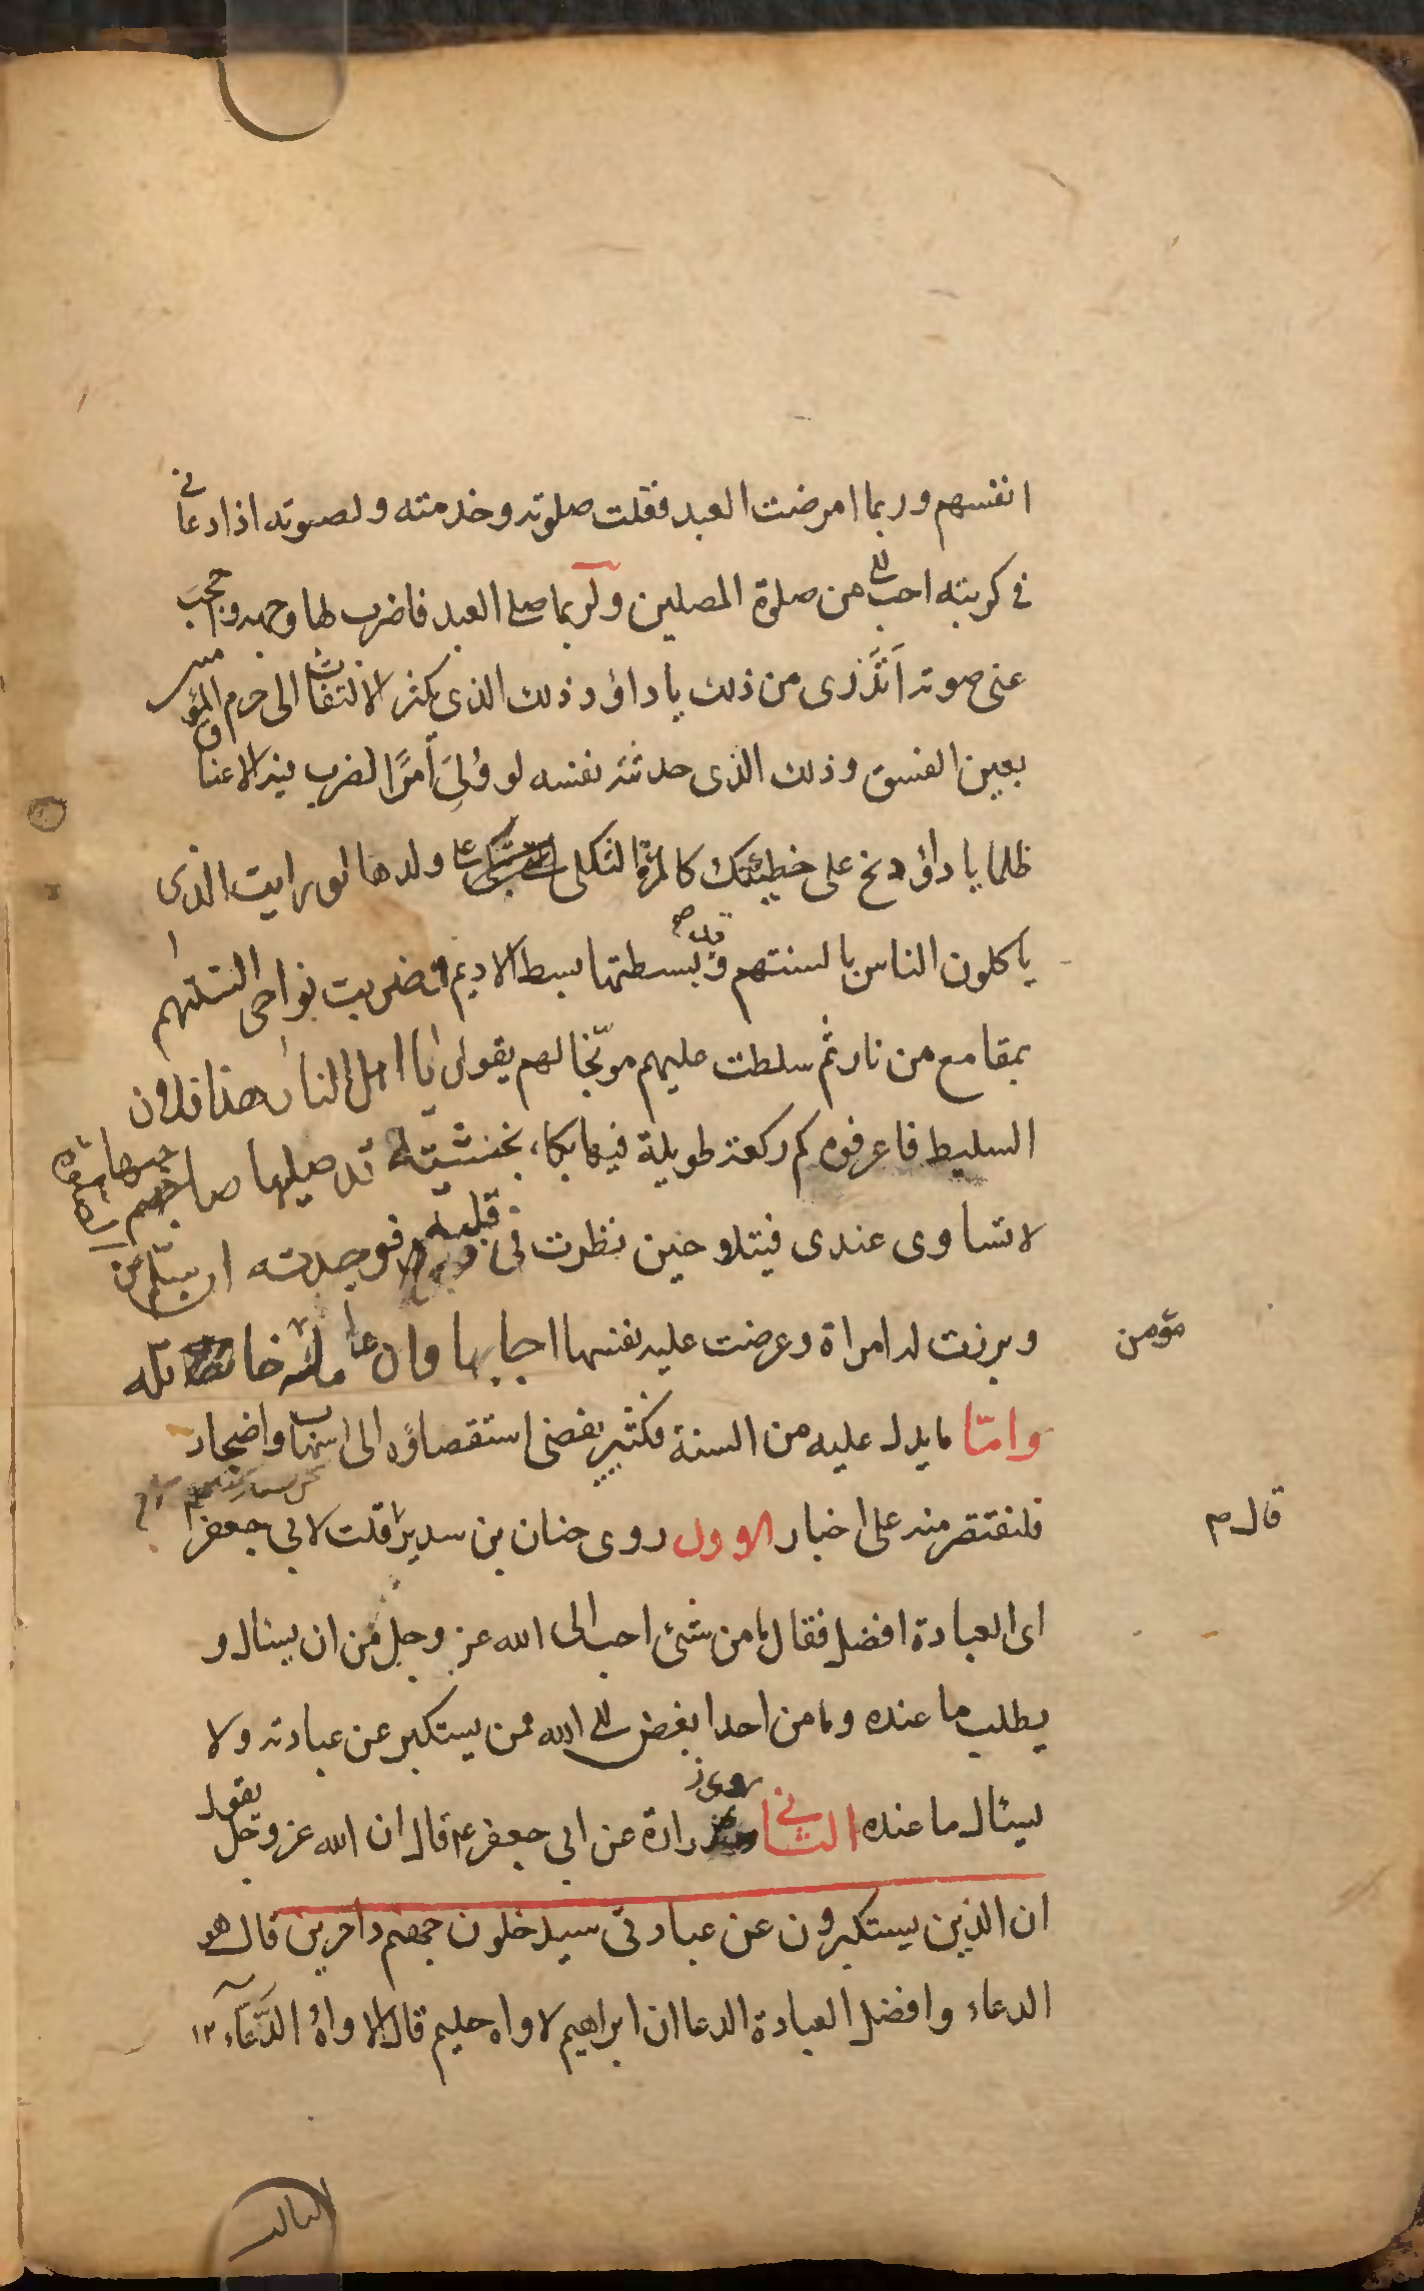 انفسهم وربما امرضت العبد فقلت صلوته وخدمته ولصوته اذا دعانى
فى كربته احب الى من صلوة المصلين ولربما صلى العبد فاضرب بها وجهه واحجب
عنى صوته اتدرى من ذلك يا داؤد ذلك الذى يكثر الالتفات الى حرم المؤمنين
بعين الفسق وذلك الذى حدثته نفسه لو ولى امرا لضرب فيه الاعناق
ظلما يا داؤد نح على خطيئتك كالمرأة الثكلى على ولدها لو رايت الذى
ياكلون الناس بالسنتهم وقد بسطتها بسط الاديم وضربت نواحى السنتهم
بمقامع من نار ثم سلطت عليهم موبخا لهم يقول يا اهل النار هذا فلان
السليط فاعرفوه كم ركعة طويلة فيها بكاء بخشية قد صليها صاحبها
لا تساوى عندى فتيلا حين نظرت فى قلبه فوجدته ان سلم من الصلوة
وبرزت له امراة وعرضت عليه نفسها اجابها وان عامله مؤمن خاتله
واما ما يدل عليه من السنة فكثير يفضى استقصاؤه الى اسهاب واضجار
فلنقتصر منه على اخبار الاول روى حنان بن سدير قال قلت لابى جعفر
اى العبادة افضل فقال ما من شئ احب الى الله عز وجل من ان يسئال و
يطلب ما عنده وما من احد ابغض الى الله ممن يستكبر عن عبادته ولا
يسئال ما عنده الثانى روى زرارة عن ابى جعفر ع قال ان الله عز وجل يقول
ان الذين يستكبرون عن عبادتى سيدخلون جهنم داخرين قال هو
الدعاء وافضل العبادة الدعا ان ابراهيم لاواه حليم قال الاواه الدعاء ١٢